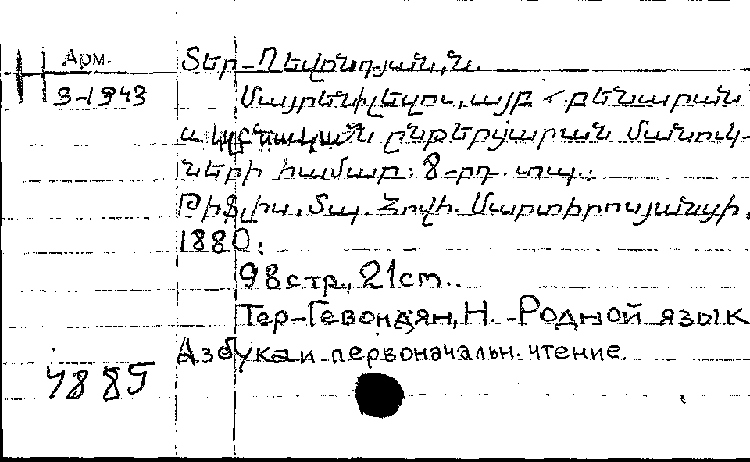 Арм.
3-1943
Տեր-Ղեվոնդյան, Ն.
Մայրենի լեզու, այբ<բենարան
և սկզբնական ընթերցարան մանուկ-
ների համար: 8-րդ. տպ.:
Թիֆլիս, Տպ. Հովհ. Մարտիրոսյանցի,
1880:
98 стр., 21 см..
Тер-Гевондян, Н. - Родной язык
Азбука и первоначальн. чтение.
4885